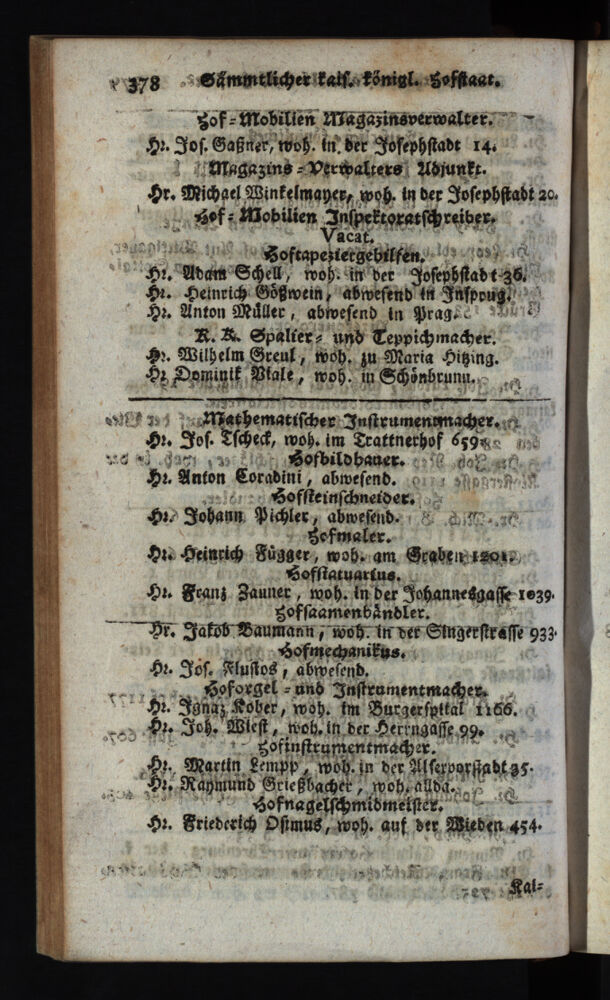 378 Sämmtlicher kais. königl. Hofstaat.
Hof-Mobilien Magazinsverwalter.
Hr. Jos. Gaßner, woh. in der Josephstadt 14.
Magazins-Verwalters Adjunkt.
Hr. Michael Winkelmayer, woh. in der Josephstadt 20.
Hof-Mobilien Inspektoratschreiber.
Vacat.
Hoftapeziergehilfen.
Hr. Adam Schell, woh. in der Josephstadt 36.
Hr. Heinrich Gößwein, abwesend in Insprug.
Hr. Anton Müller, abwesend in Prag.
K. K. Spalier- und Teppichmacher.
Hr. Wilhelm Greul, woh. zu Maria Hitzing.
Hr Dominik Viale, woh. in Schönbrunn.
Mathematischer Instrumentmacher.
Hr. Jos. Tscheck, woh. im Trattnerhof 659.
Hofbildhauer.
Hr. Anton Coradini, abwesend.
Hofsteinschneider.
Hr. Johann Pichler, abwesend.
Hofmaler.
Hr. Heinrich Függer, woh. am Graben 1201.
Hofstatuarius.
Hr. Franz Zauner, woh. in der Johannesgasse 1039.
Hofsaamenhändler.
Hr. Jakob Baumann, woh. in der Singerstrasse 933.
Hofmechanikus.
Hr. Jos. Flustos, abwesend.
Hoforgel- und Instrumentmacher.
Hr. Ignaz Kober, woh. im Burgerspital 1166.
Hr. Joh. Wiest, woh. in der Herrngasse 99.
Hofinstrumentmacher.
Hr. Martin Lempp, woh. in der Alservorstadt 35.
Hr. Raymund Grießbacher, woh. allda.
Hofnagelschmidmeister.
Hr. Friederich Osimus, woh. auf der Wieden 454.
Kai-